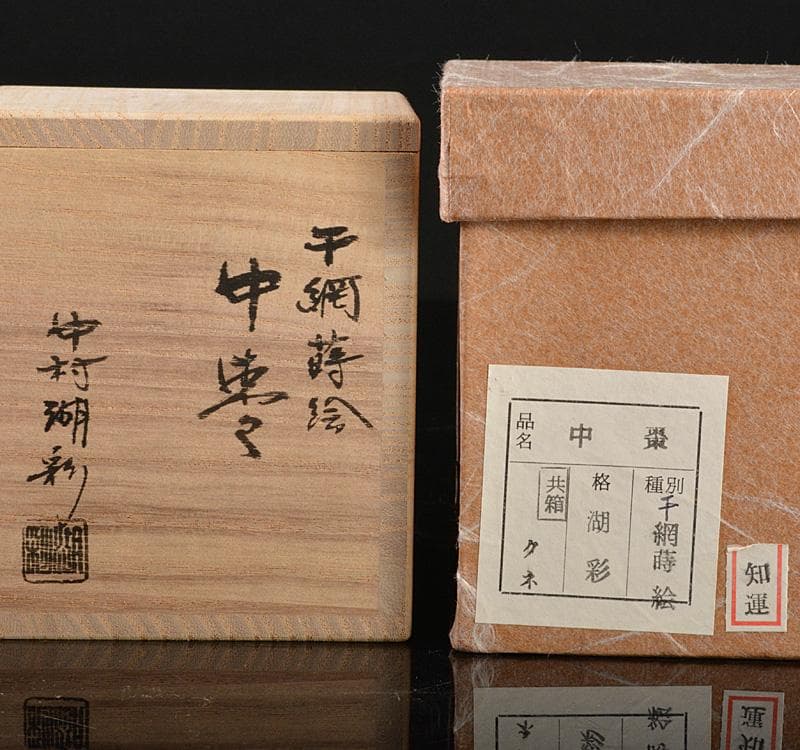 干網蒔絵
中棗
中村湖彩
品名
中棗
種別
干網蒔絵
格
湖彩
共箱
クネ
知運